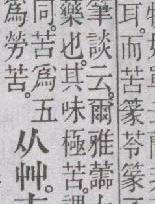 耳。而苦篆苓篆
筆談云。爾雅蘦
藥也。其味極苦。謂
同。苦爲五
爲勞苦。
从艸